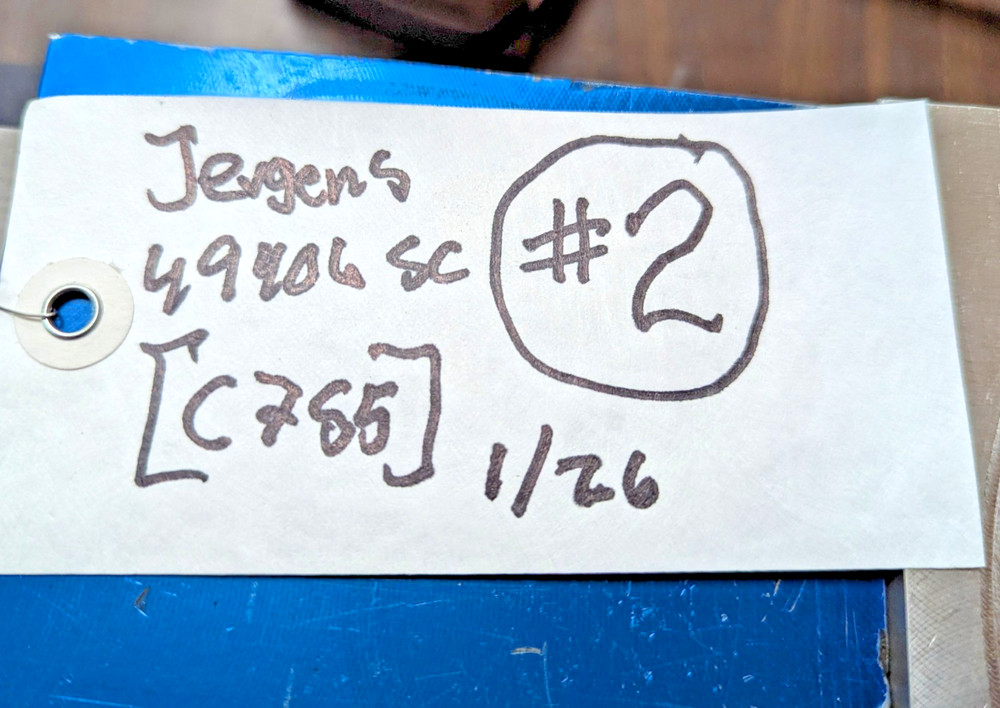 Jergens
49406 SC
#2
[C785]
1/26